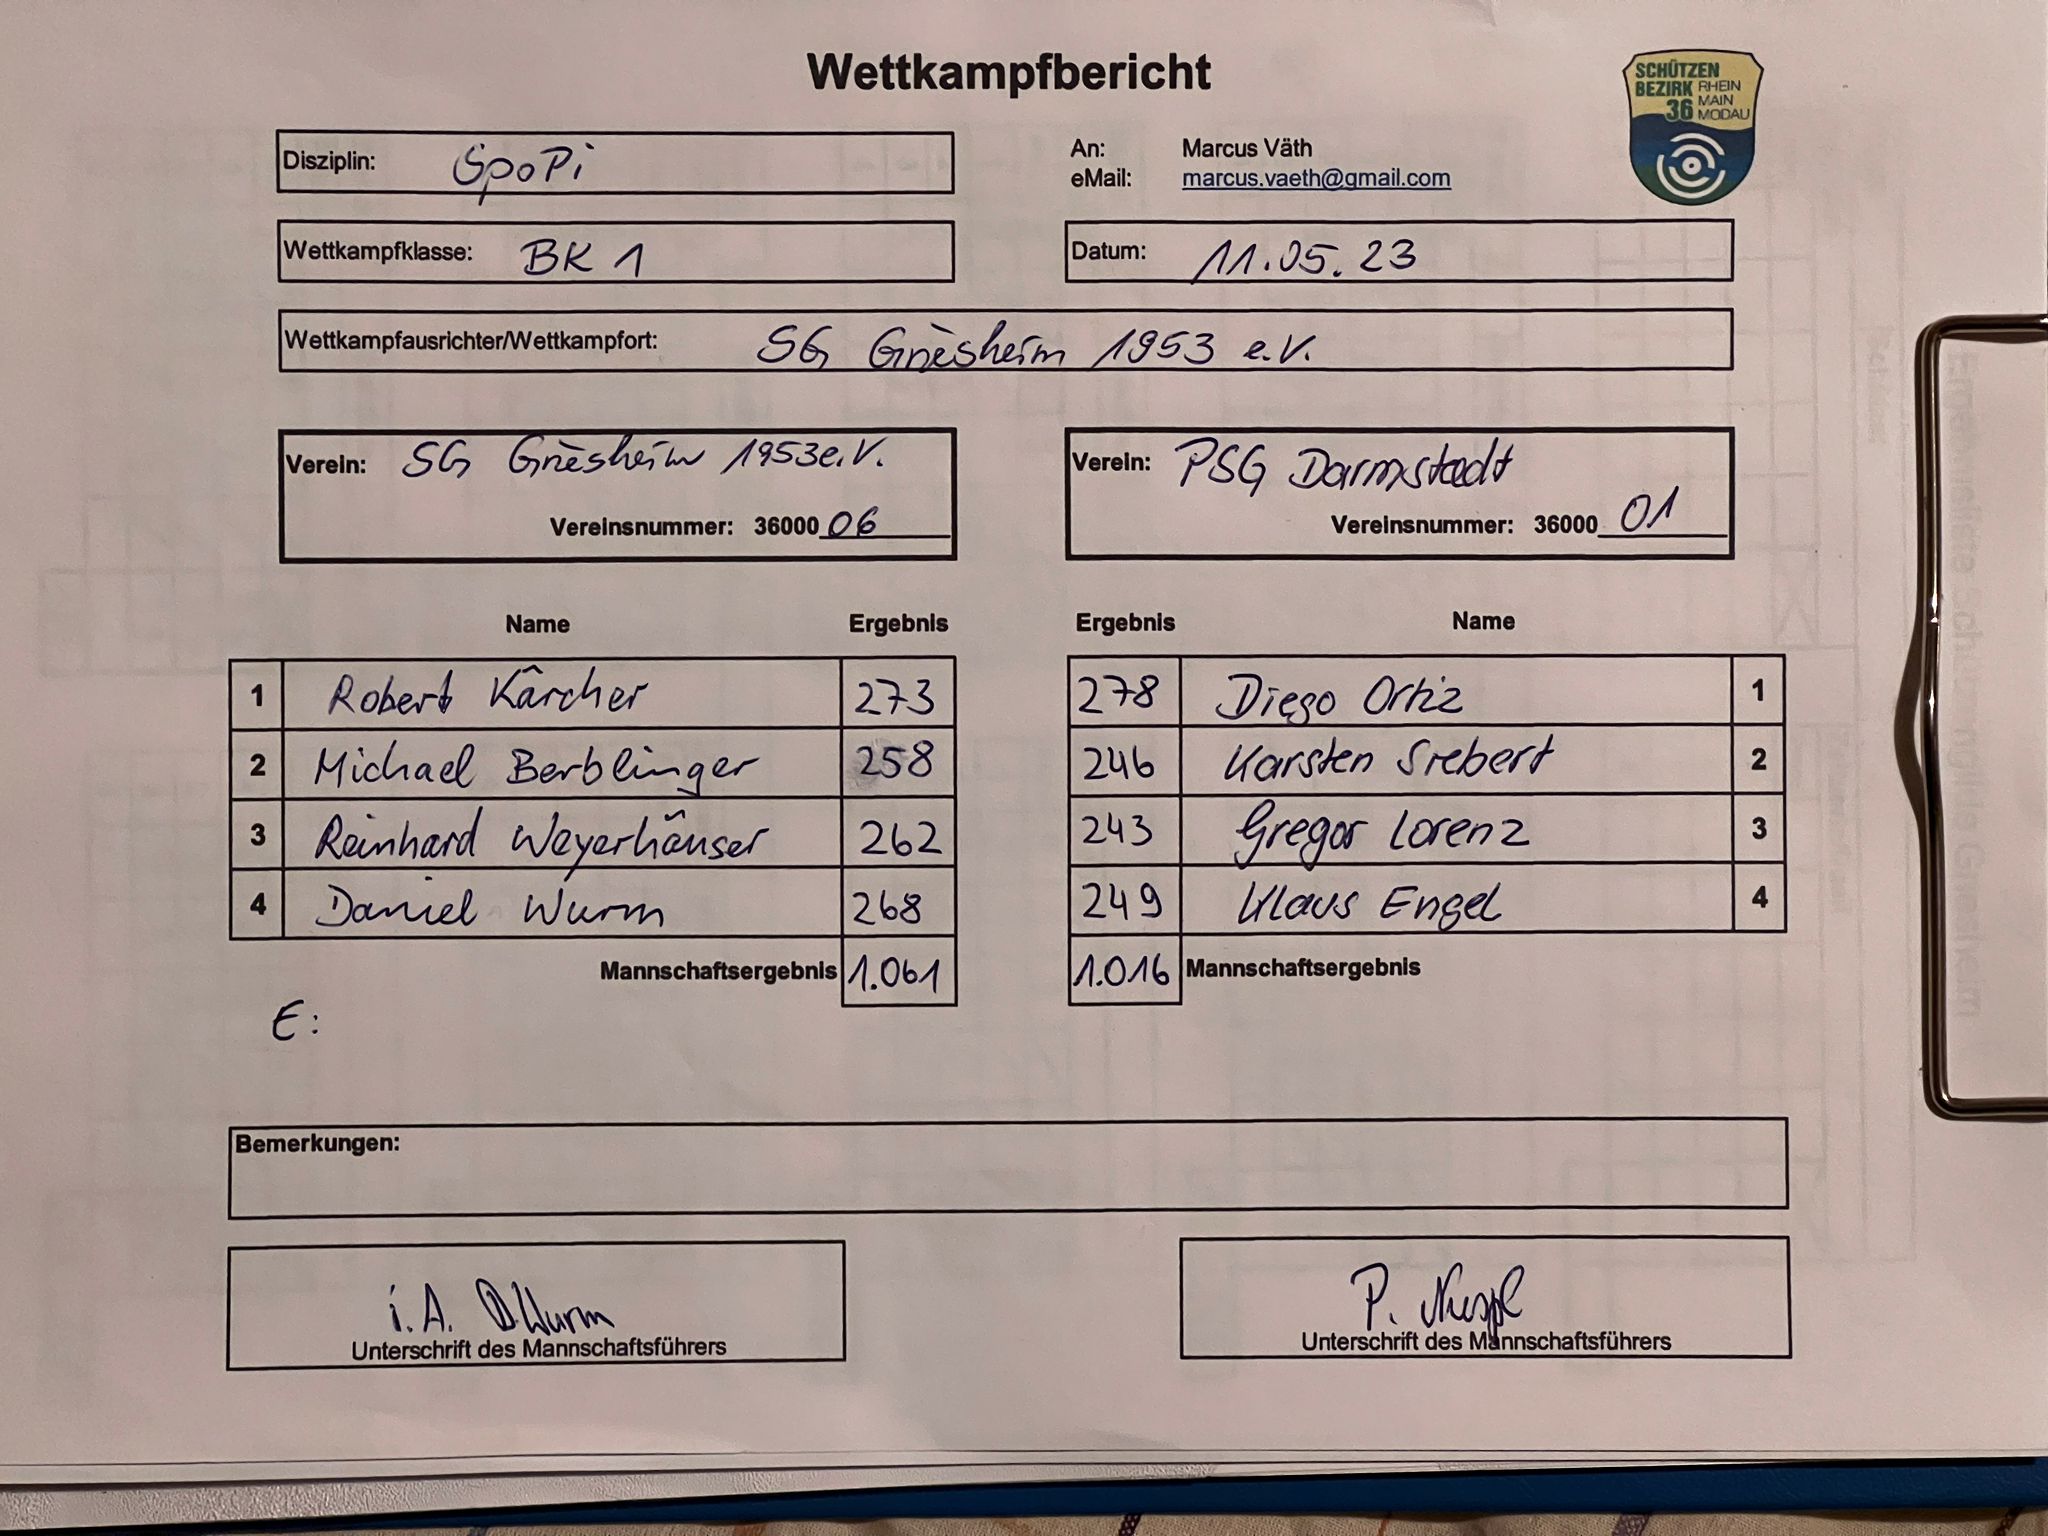 Wettkampfbericht
SCHÜTZEN
BEZIRK RHEIN
36 MAIN
MODAU
Disziplin: SpoPi
An: Marcus Väth
eMail: marcus.vaeth@gmail.com
Wettkampfklasse: BK 1
Datum: 11.05.23
Wettkampfausrichter/Wettkampfort: SG Griesheim 1953 e.V.
Verein: SG Griesheim 1953 e.V.
Vereinsnummer: 36000 06
Verein: PSG Darmstadt
Vereinsnummer: 36000 01
Name Ergebnis Ergebnis Name
1 Robert Kärcher 273 278 Diego Ortiz 1
2 Michael Berblinger 258 246 Karsten Siebert 2
3 Reinhard Weyerhäuser 262 243 Gregor Lorenz 3
4 Daniel Wurm 268 249 Klaus Engel 4
Mannschaftsergebnis 1.061 1.016 Mannschaftsergebnis
E:
Bemerkungen:
i.A. D.Wurm
Unterschrift des Mannschaftsführers
P.
Unterschrift des Mannschaftsführers